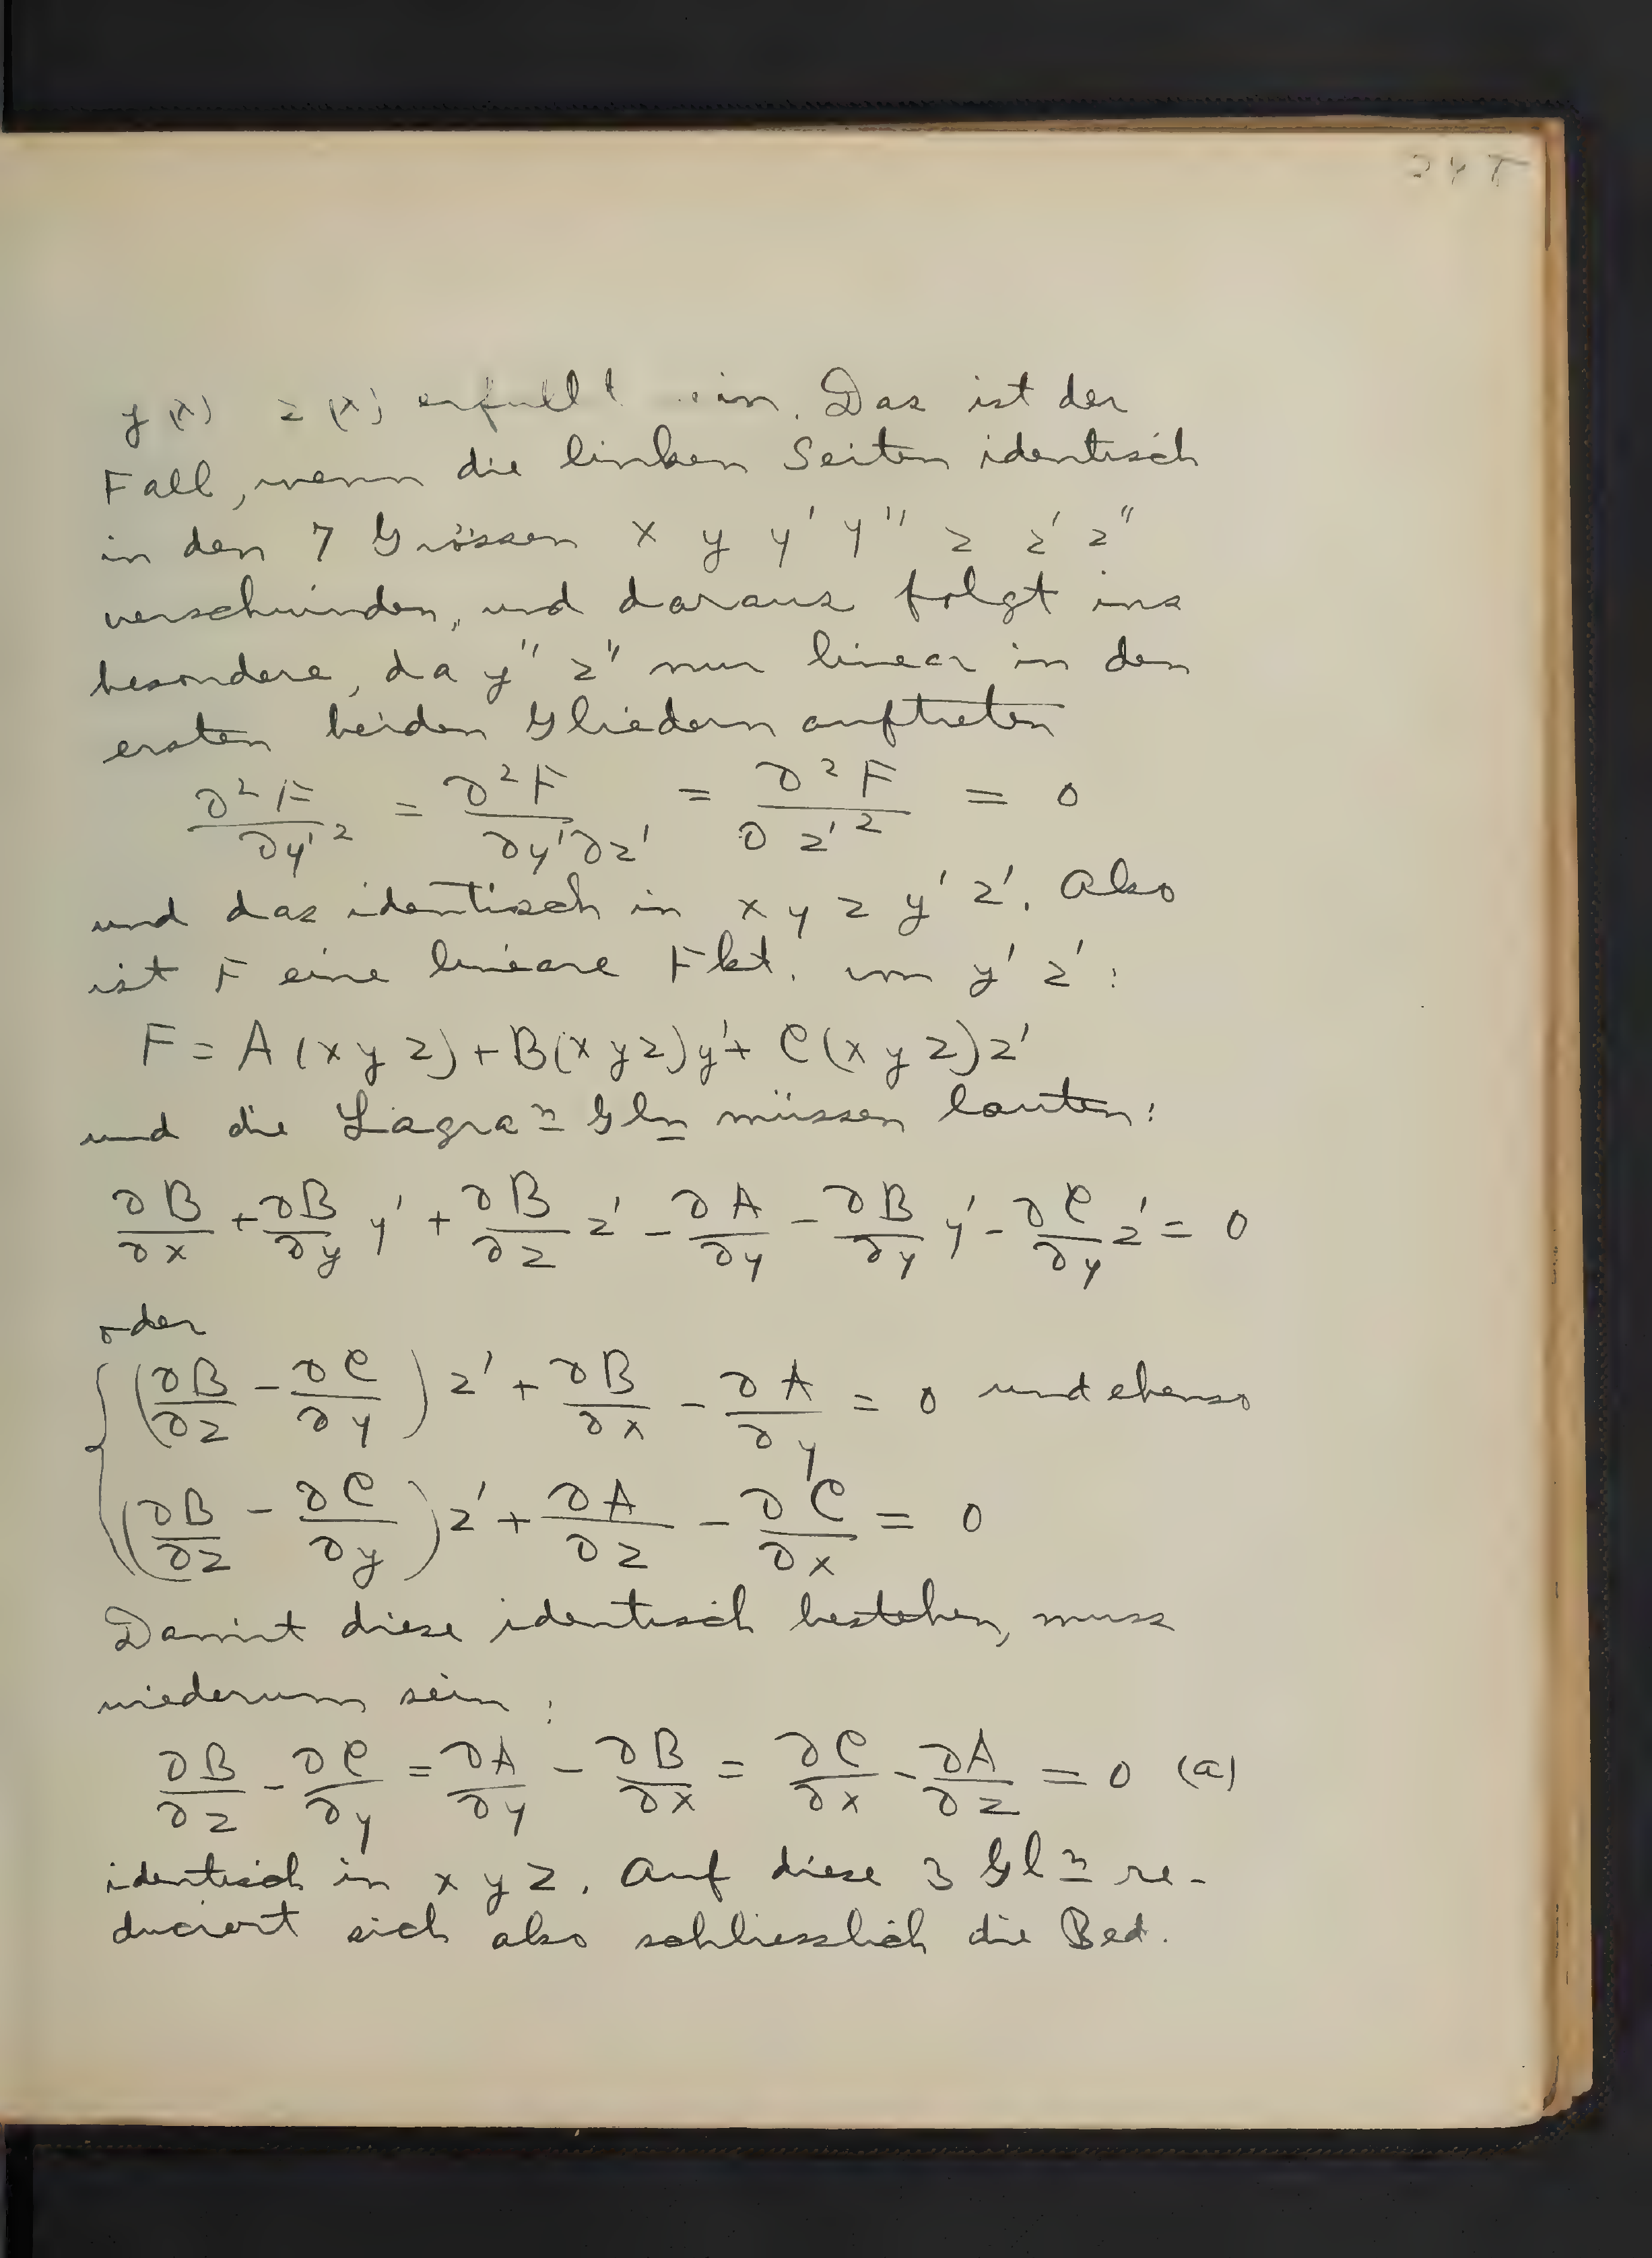 y(x) z(x) erfüllt sein. Das ist der
Fall, wenn die linken Seiten identisch
in den 7 Grössen x y y' y'' z z' z''
verschwinden, und daraus folgt ins
besondere, da y'' z'' nur linear in den
ersten beiden Gliedern auftreten
∂²F/∂y'² = ∂²F/∂y'∂z' = ∂²F/∂z'² = 0
und das identisch in x y z y' z'. Also
ist F eine lineare Fkt. von y' z':
F = A(x y z) + B(x y z)y' + C(x y z)z'
und die Lagra＝n Gln müssen lauten:
∂B/∂x + ∂B/∂y y' + ∂B/∂z z' - ∂A/∂y - ∂B/∂y y' - ∂C/∂y z' = 0
oder
(∂B/∂z - ∂C/∂y) z' + ∂B/∂x - ∂A/∂y = 0 und ebenso
(∂B/∂z - ∂C/∂y) z' + ∂A/∂z - ∂C/∂x = 0
Damit diese identisch bestehen, muss
wiederum sein:
∂B/∂z - ∂C/∂y = ∂A/∂y - ∂B/∂x = ∂C/∂x - ∂A/∂z = 0 (a)
identisch in x y z. Auf diese 3 Gln re-
duciert sich also schliesslich die Bed.